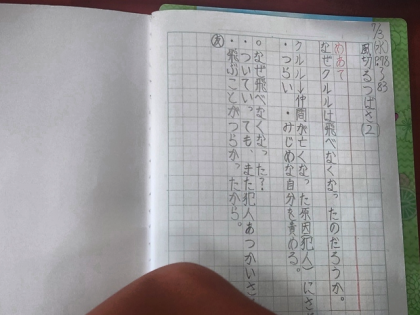 7/3(水)
P78
83
風切るつばさ(2)
めあて
なぜクルルは飛べなくなったのだろうか。
クルル↓仲間が亡くなった原因(犯人)にさ
・つらい ・みじめな自分を責める。
○なぜ飛べなくなった?
・ついていっても、また犯人あつかいさ
・飛ぶことがつらかったから。